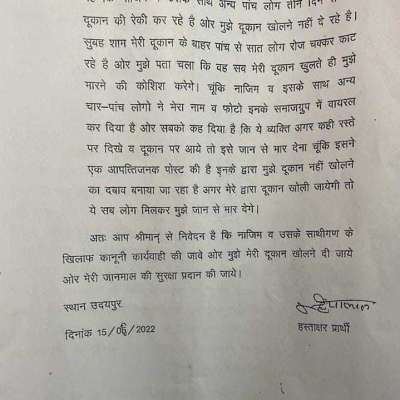 दुकान की रेकी कर रहे है और मुझे दूकान खोलने नहीं दे रहे है।
सुबह शाम मेरी दूकान के बाहर पांच से सात लोग रोज चक्कर काट
रहे है ओर मुझे पता चला कि वह सब मेरी दूकान खुलते ही मुझे
मारने की कोशिश करेगे। चूंकि नाजिम व इसके साथ अन्य
चार–पांच लोगो ने मेरा नाम व फोटो इनके समाजग्रुप में वायरल
कर दिया है ओर सबको कह दिया है कि ये ब्यक्ति अगर कही रस्ते
पर दिखे व दूकान पर आये तो इसे जान से मार देना चूंकि इसने
एक आपत्तिजनक पोस्ट की है इनके द्वारा मुझे दूकान नहीं खोलने
का दबाव बनाया जा रहा है अगर मेरे द्वारा दूकान खोली जायेगी तो
ये सब लोग मिलकर मुझे जान से मार देगे।
अतः आप श्रीमान् से निवेदन है कि नाजिम व उसके साथीगण के
खिलाफ कानूनी कार्यवाही की जावे ओर मुझे मेरी दूकान खोलने दी जाये
ओर मेरी जानमाल की सुरक्षा प्रदान की जाये।
स्थान उदयपुर
दिनांक 15/06/2022
हस्ताक्षर प्रार्थी